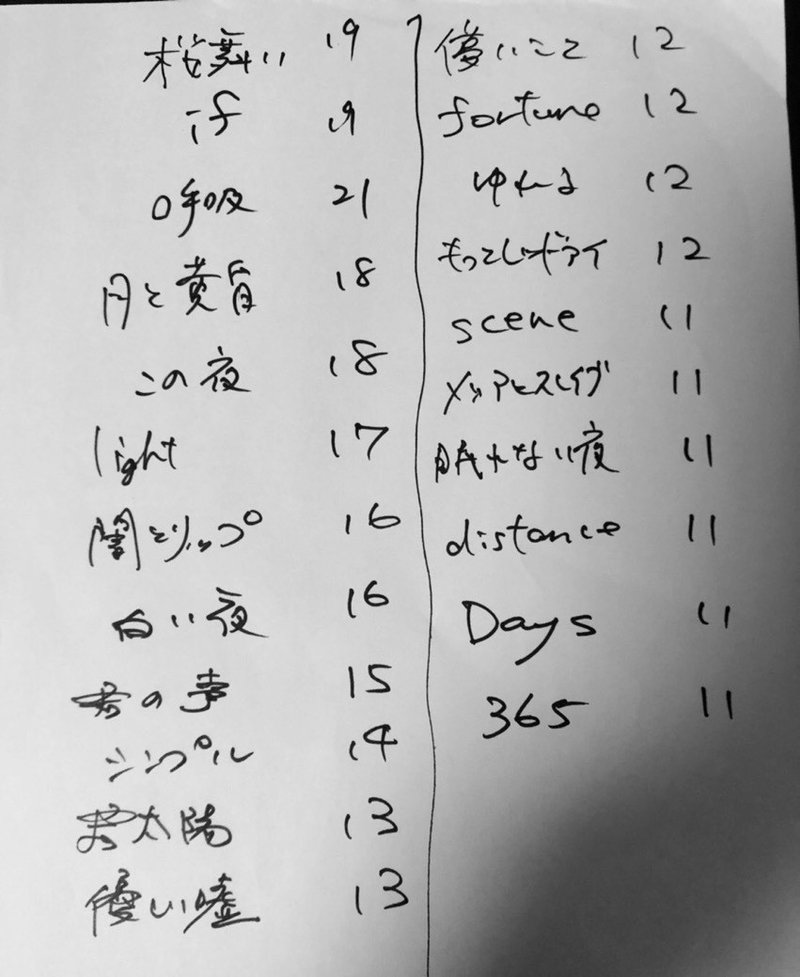 桜舞い 19
if 19
呼吸 21
月と黄昏 18
この夜 18
light 17
闇とリップ 16
白い夜 16
君の声 15
シンプル 14
太陽 13
優しい嘘 13
儚いこと 12
fortune 12
ゆれる 12
もっとしドライ 12
scene 11
メシアとスレイブ 11
眠れない夜 11
distance 11
Days 11
365 11